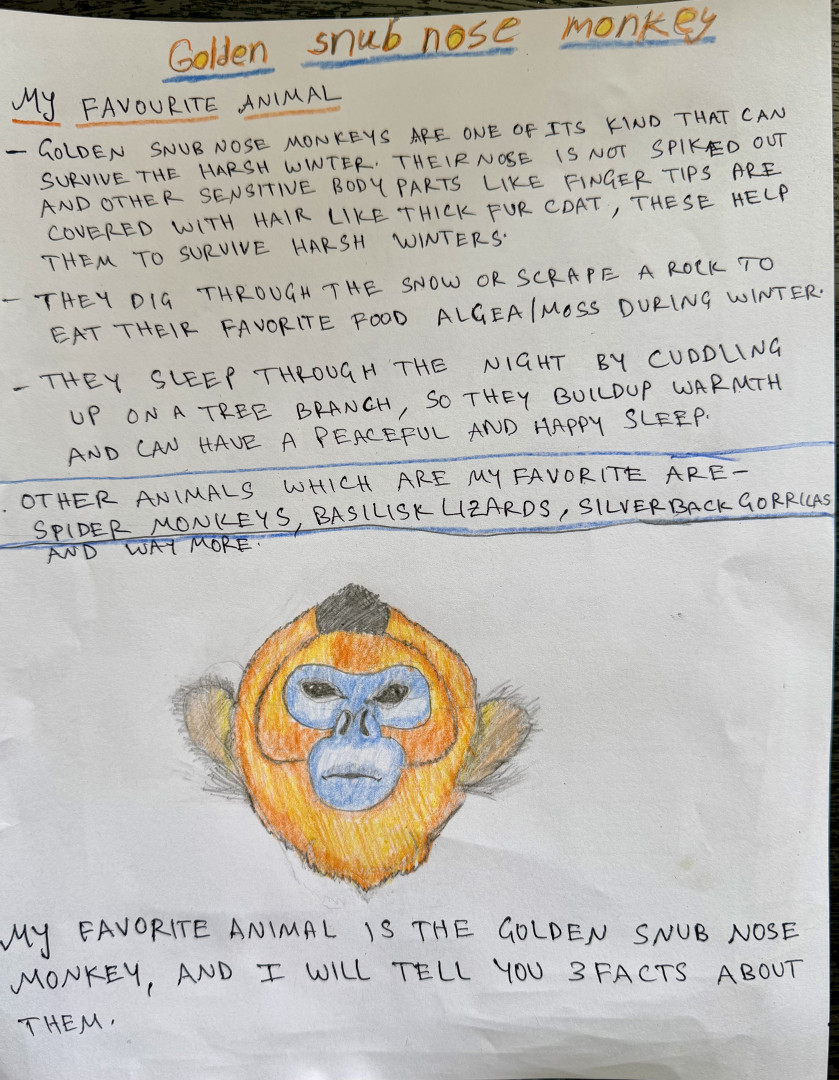 Golden snub nose monkey
MY FAVOURITE ANIMAL
- GOLDEN SNUB NOSE MONKEYS ARE ONE OF ITS KIND THAT CAN
SURVIVE THE HARSH WINTER. THEIR NOSE IS NOT SPIKED OUT
AND OTHER SENSITIVE BODY PARTS LIKE FINGER TIPS ARE
COVERED WITH HAIR LIKE THICK FUR COAT, THESE HELP
THEM TO SURVIVE HARSH WINTERS.
- THEY DIG THROUGH THE SNOW OR SCRAPE A ROCK TO
EAT THEIR FAVORITE FOOD ALGEA/MOSS DURING WINTER.
- THEY SLEEP THROUGH THE NIGHT BY CUDDLING
UP ON A TREE BRANCH, SO THEY BUILDUP WARMTH
AND CAN HAVE A PEACEFUL AND HAPPY SLEEP.
. OTHER ANIMALS WHICH ARE MY FAVORITE ARE-
SPIDER MONKEYS, BASILISK LIZARDS, SILVERBACK GORRILAS
AND WAY MORE.
MY FAVORITE ANIMAL IS THE GOLDEN SNUB NOSE
MONKEY, AND I WILL TELL YOU 3 FACTS ABOUT
THEM.